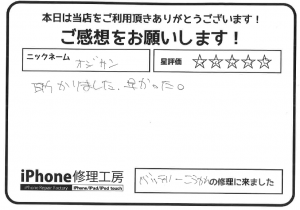 本日は当店をご利用頂きありがとうございます!
ご感想をお願いします!
ニックネーム オジサン 星評価 ☆☆☆☆☆
助かりました、早かった。
iPhone修理工房
iPhone Repair Factory iPhone/iPad/iPod touch
バッテリーこうかんの修理に来ました